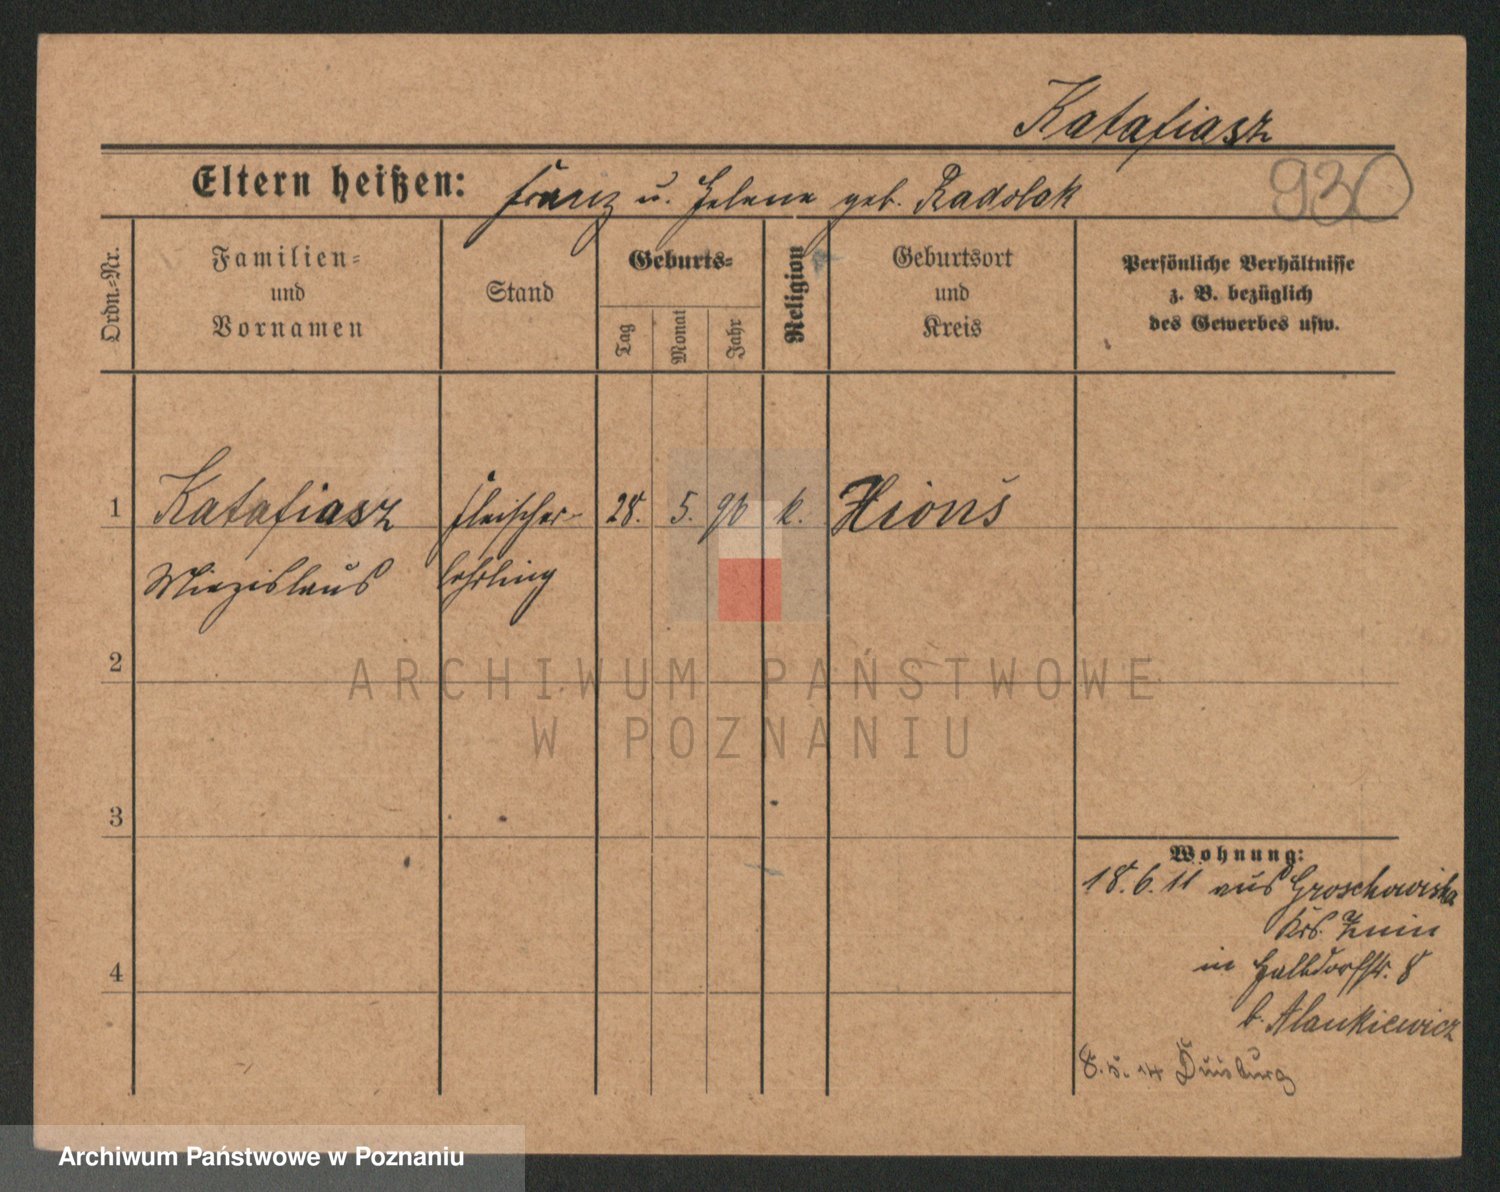 Katafiasz
930
Eltern heißen: Franz u. Helene geb. Radolak
Ordn.-Nr.
Familien-
und
Vornamen
Stand
Geburts-
Tag
Monat
Jahr
Religion
Geburtsort
und
Kreis
Persönliche Verhältnisse
z. B. bezüglich
des Gewerbes usw.
1 Katafiasz Fleischer- 28. 5. 96 k. Xions
Miezislaus lehrling
2
3
4
Wohnung:
18.6.11 aus Groschowiska
Krs. Znin
in Halbdorfstr. 8
b. Alankiewicz
8.5.14 Duisburg
ARCHIWUM PAŃSTWOWE
W POZNANIU
Archiwum Państwowe w Poznaniu